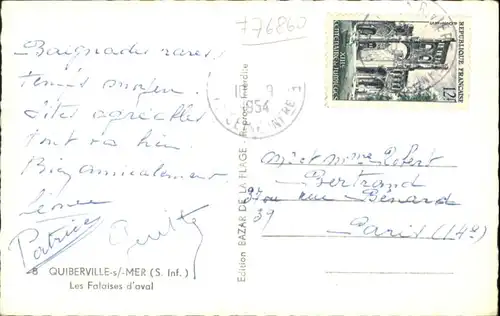 776860
Baignades rares
temps moyen !
sites agréables
tout va bien.
Bien amicalement
Patrice
8 QUIBERVILLE-s/-MER (S. Inf.)
Les Falaises d'aval
Edition BAZAR DE LA PLAGE. - Reprod. Interdite
1954
REPUBLIQUE FRANÇAISE
12F
Mr et Mme Robert
Bertrand
37 ou rue Bénard
37
Paris (14e)